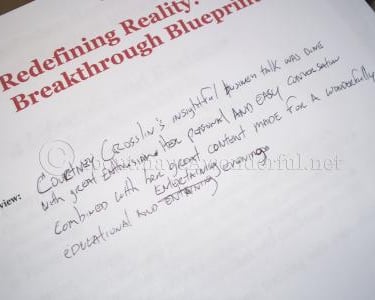 Redefining Reality:
Breakthrough Blueprin
Courtney Crosslin's insightful business talk was done
with great Enthusiasm. Her personal AND easy conversation
Combined with her great content made for a wonderfully
Entertaining evening
educational AND
view: